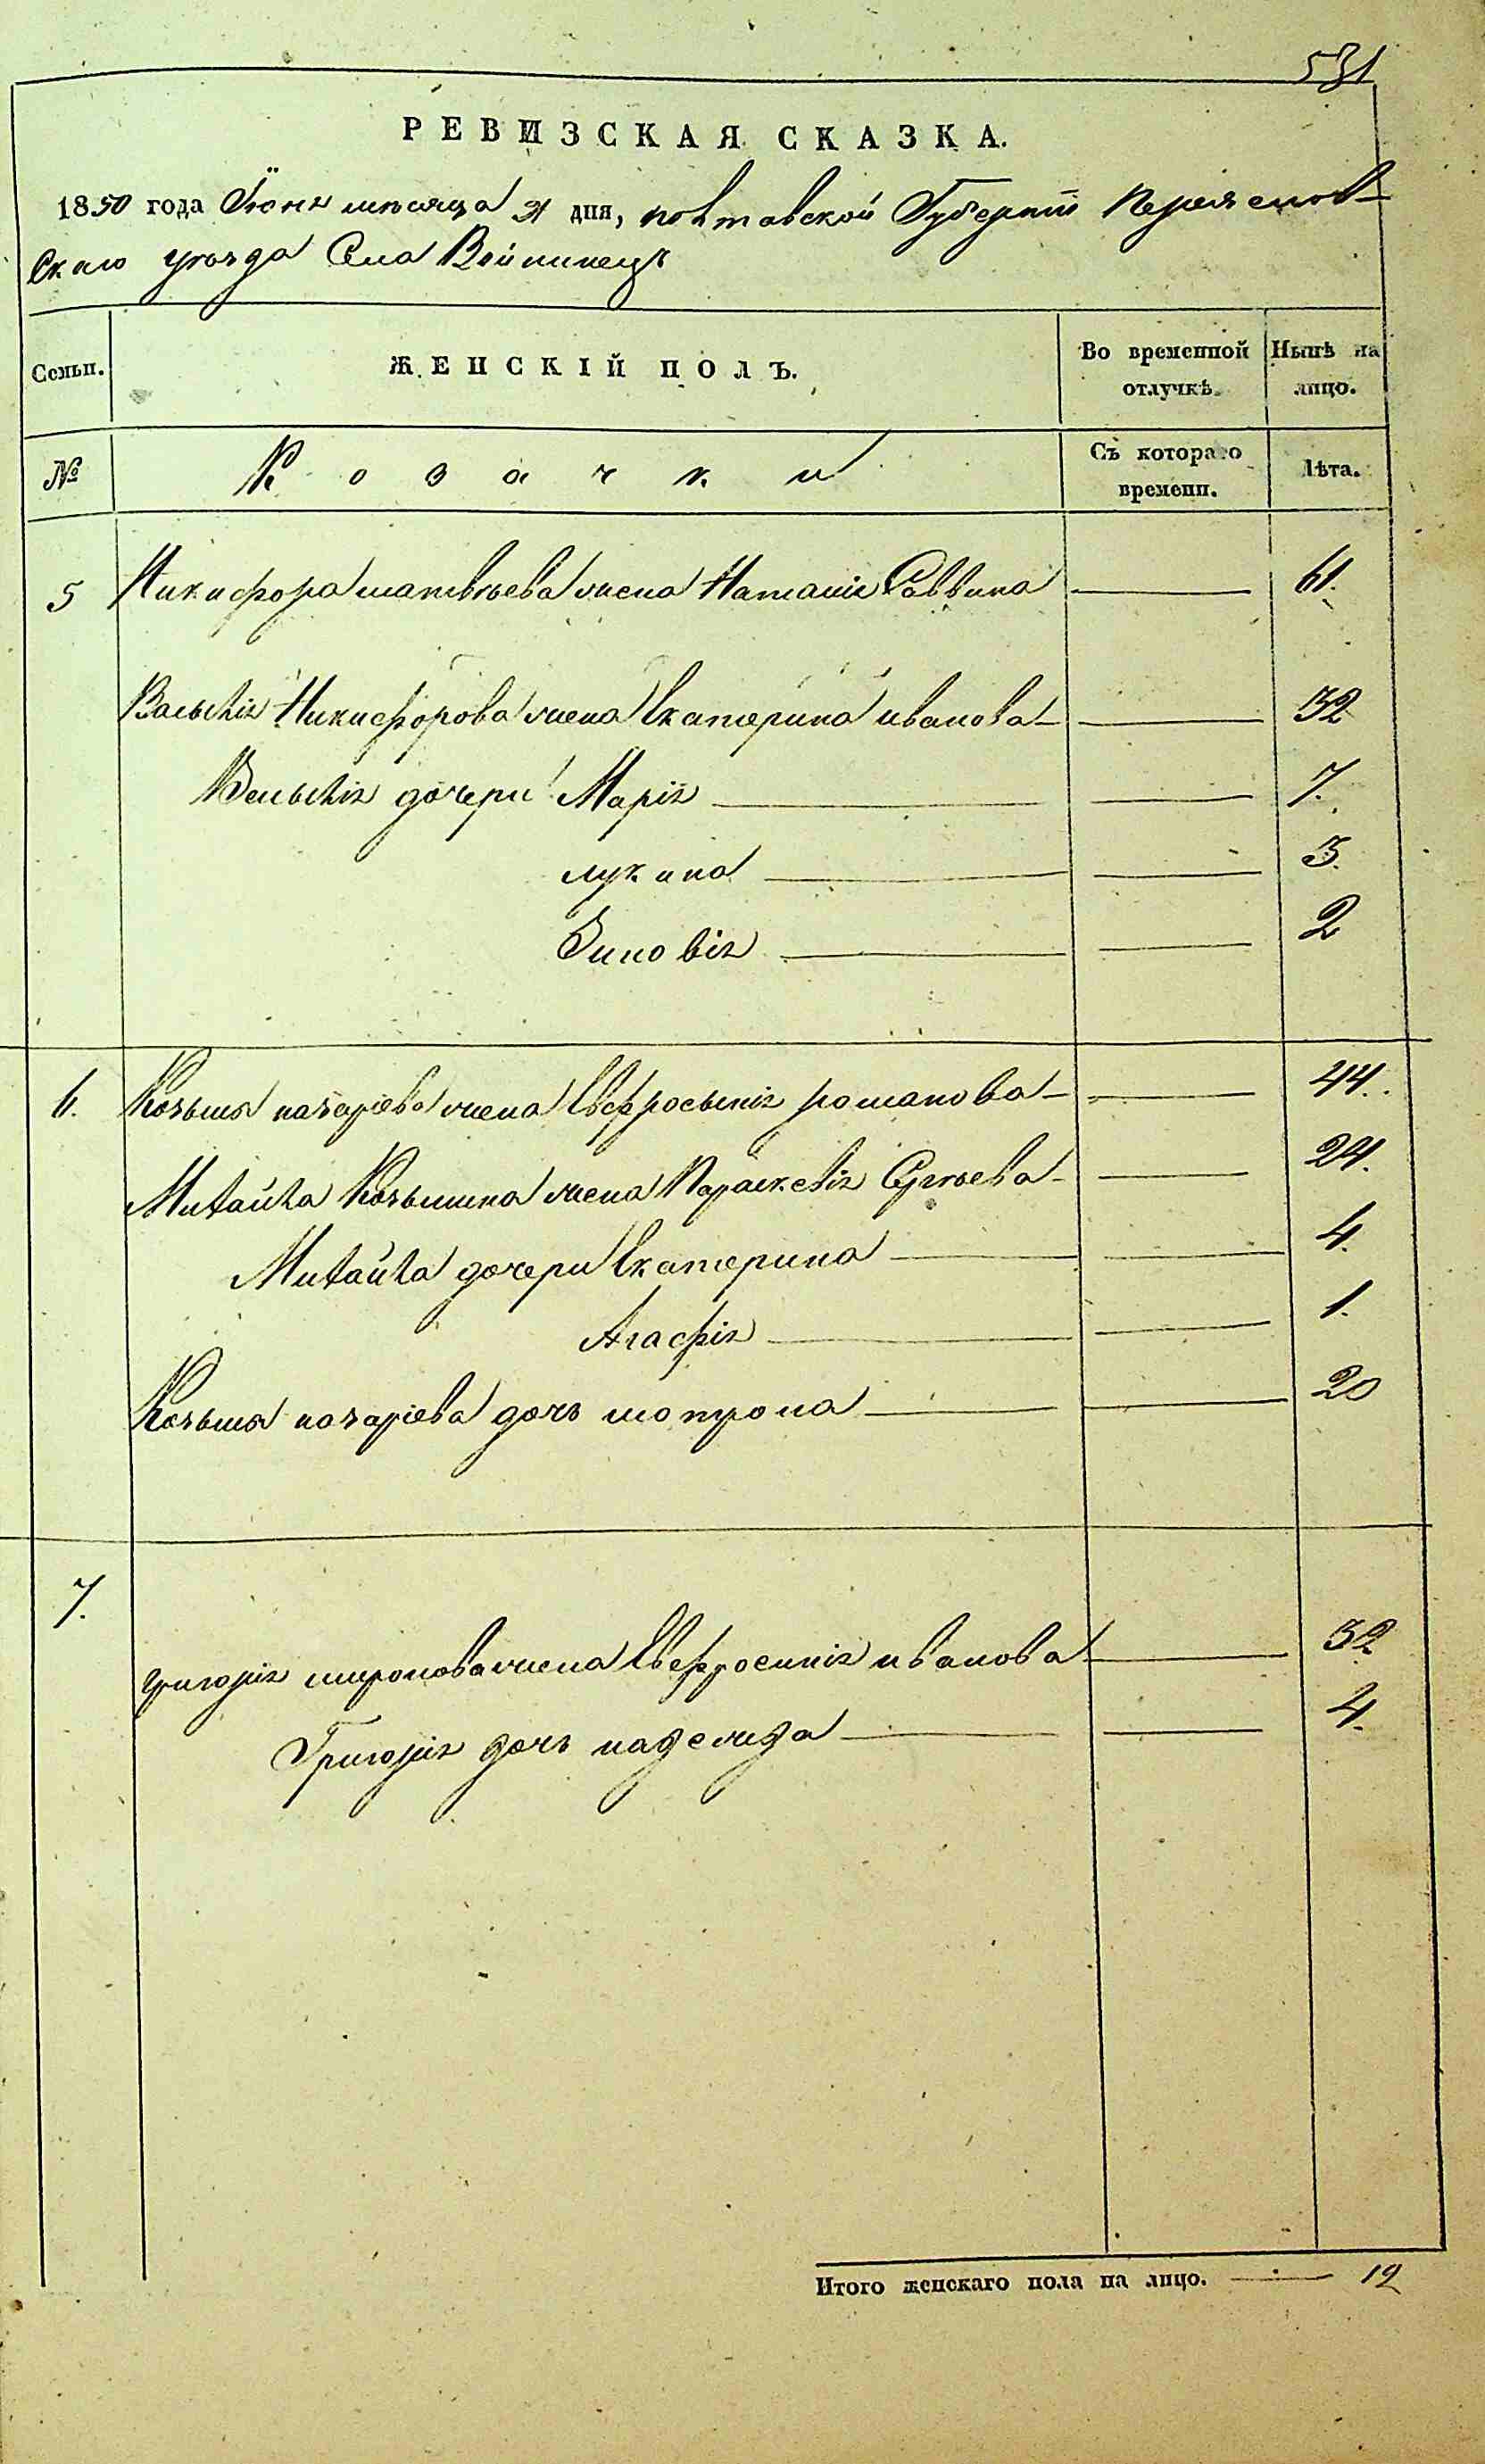 531
РЕВИЗСКАЯ СКАЗКА.
1850 года Іюня мѣсяца 21 дня, полтавской Губерніи Переяслов-
скаго уѣзда Села Войтинецъ
Семьи. ЖЕНСКІЙ ПОЛЪ. Во временной отлучкѣ. Нынѣ на лицо.
№ Козачки Съ котораго времени. Лѣта.
5 Никифора матвѣева жена Наталія Саввина 61.
Василія Никифорова жена Екатерина иванова 32
Василія дочери Марія 7.
лукина 3.
Зиновія 2
6. Козьмы назарiева жена Евфросынія романова 44.
Михайла Козьмина жена Параскевія Сергѣева 24.
Михайла дочери Екатерина 4.
Агафія 1.
Козьмы назарiева дочь мотрона 20
7.
григорія миронова жена Евфросинія иванова 32
Григорія дочь надежда 4.
Итого женскаго пола на лицо. 12